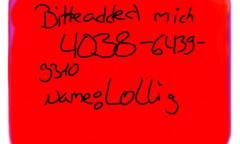 Bitte added mich
4038-6439-
3310
Name:Lollig